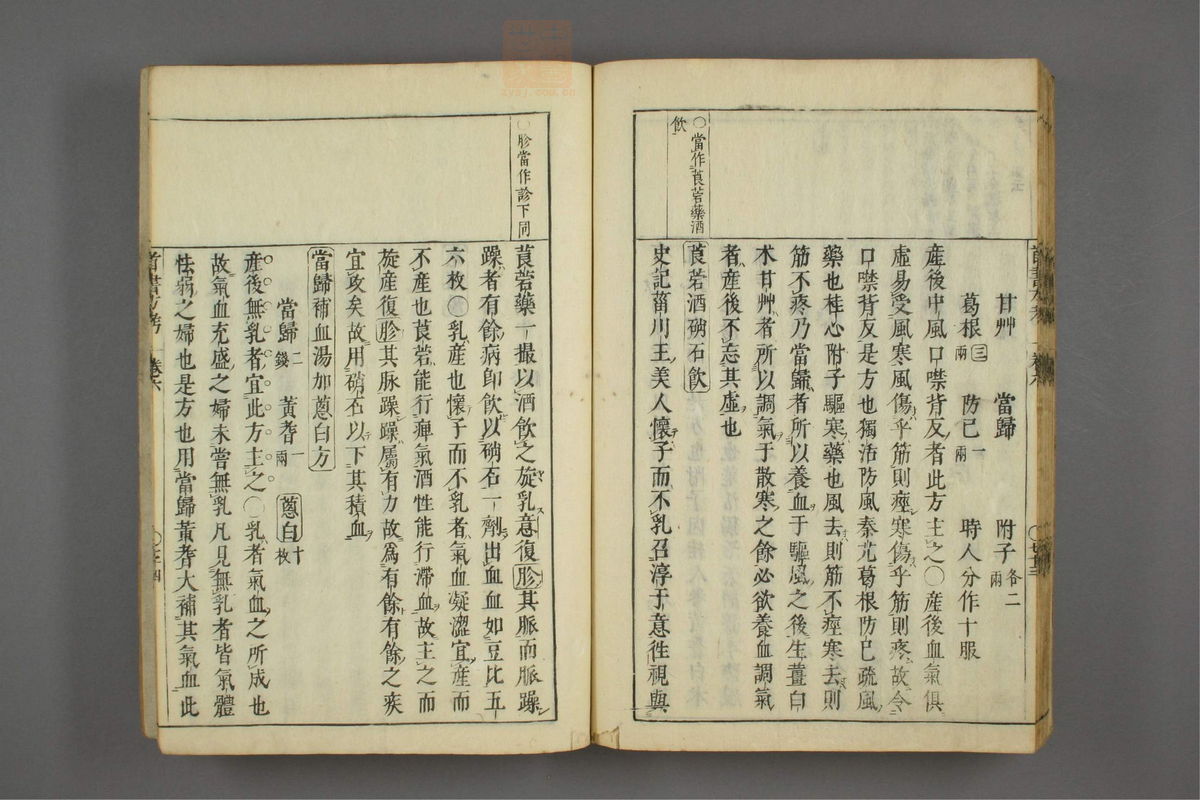 ○當作莨菪藥酒
飲
甘艸　當歸　附子各二兩
葛根三兩　防己一兩　時人分作十服
產後中風口噤背反者此方主之○產後血氣俱
虛易受風寒風傷乎筋則痙寒傷乎筋則疼故令
口噤背反是方也獨活防風秦艽葛根防己疏風
藥也桂心附子驅寒藥也風去則筋不痙寒去則
筋不疼乃當歸者所以養血于驅風之後生薑白
朮甘艸者所以調氣于散寒之餘必欲養血調氣
者產後不忘其虛也
莨菪酒硝石飲
史記菑川王美人懷子而不乳召淳于意徃視與
○胗當作診下同
莨菪藥一撮以酒飲之旋乳意復胗其脈而脈躁
躁者有餘病卽飲以硝石一劑出血血如豆比五
六枚○乳產也懷子而不乳者氣血凝澀宜產而
不產也莨菪能行痺氣酒性能行滯血故主之而
旋產復胗其脉躁躁屬有力故爲有餘有餘之疾
宜攻矣故用硝石以下其積血
當歸補血湯加蔥白方
當歸二錢　黃耆一兩　蔥白十枚
產後無乳者宜此方主之○乳者氣血之所成也
故氣血充盛之婦未嘗無乳凡見無乳者皆氣體
怯弱之婦也是方也用當歸黃耆大補其氣血此
卷六